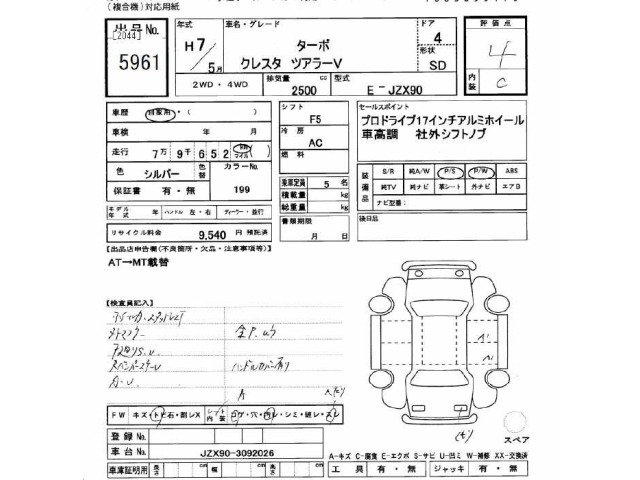 (複合機)対応用紙
出品No.
[2044]
5961
年式
H7/5月
車名・グレード
ターボ
クレスタ ツアラーV
ドア
4
形状
SD
評価点
4
内装
C
2WD・4WD
排気量
2500 cc
型式
E-JZX90
車歴 自家用・( )
車検 年 月
走行 7万9千652 km マイル
色 シルバー 色替 カラーNo. 199
保証書 有・無
モデル年式 年 ハンドル 左・右 ディーラー・並行
リサイクル料金 9,540 円 預託済
シフト F5
冷房 AC
燃料
乗車定員 5 名
積載量 kg
総重量 kg
書類期限
月 日
セールスポイント
プロドライブ17インチアルミホイール
車高調 社外シフトノブ
装備品
S/R 純A/W P/S P/W ABS
純TV 純ナビ 革シート 外ナビ エアB
ナビ型番:
後日品
【出品店申告欄(不良箇所・欠品・注意事項等)】
AT→MT載替
【検査員記入】
A
FW キズ・トビ石・割レX
レフト内装 コゲ・穴・切レ・シミ・破レ・スレ
登録No.
車台No. JZX90-3092026
車庫証明用 長さ cm 幅 cm 高さ cm
スペア
A-キズ C-腐食 E-エクボ S-サビ U-凹ミ W-補修 XX-交換済
工具 有・無 ジャッキ 有・無